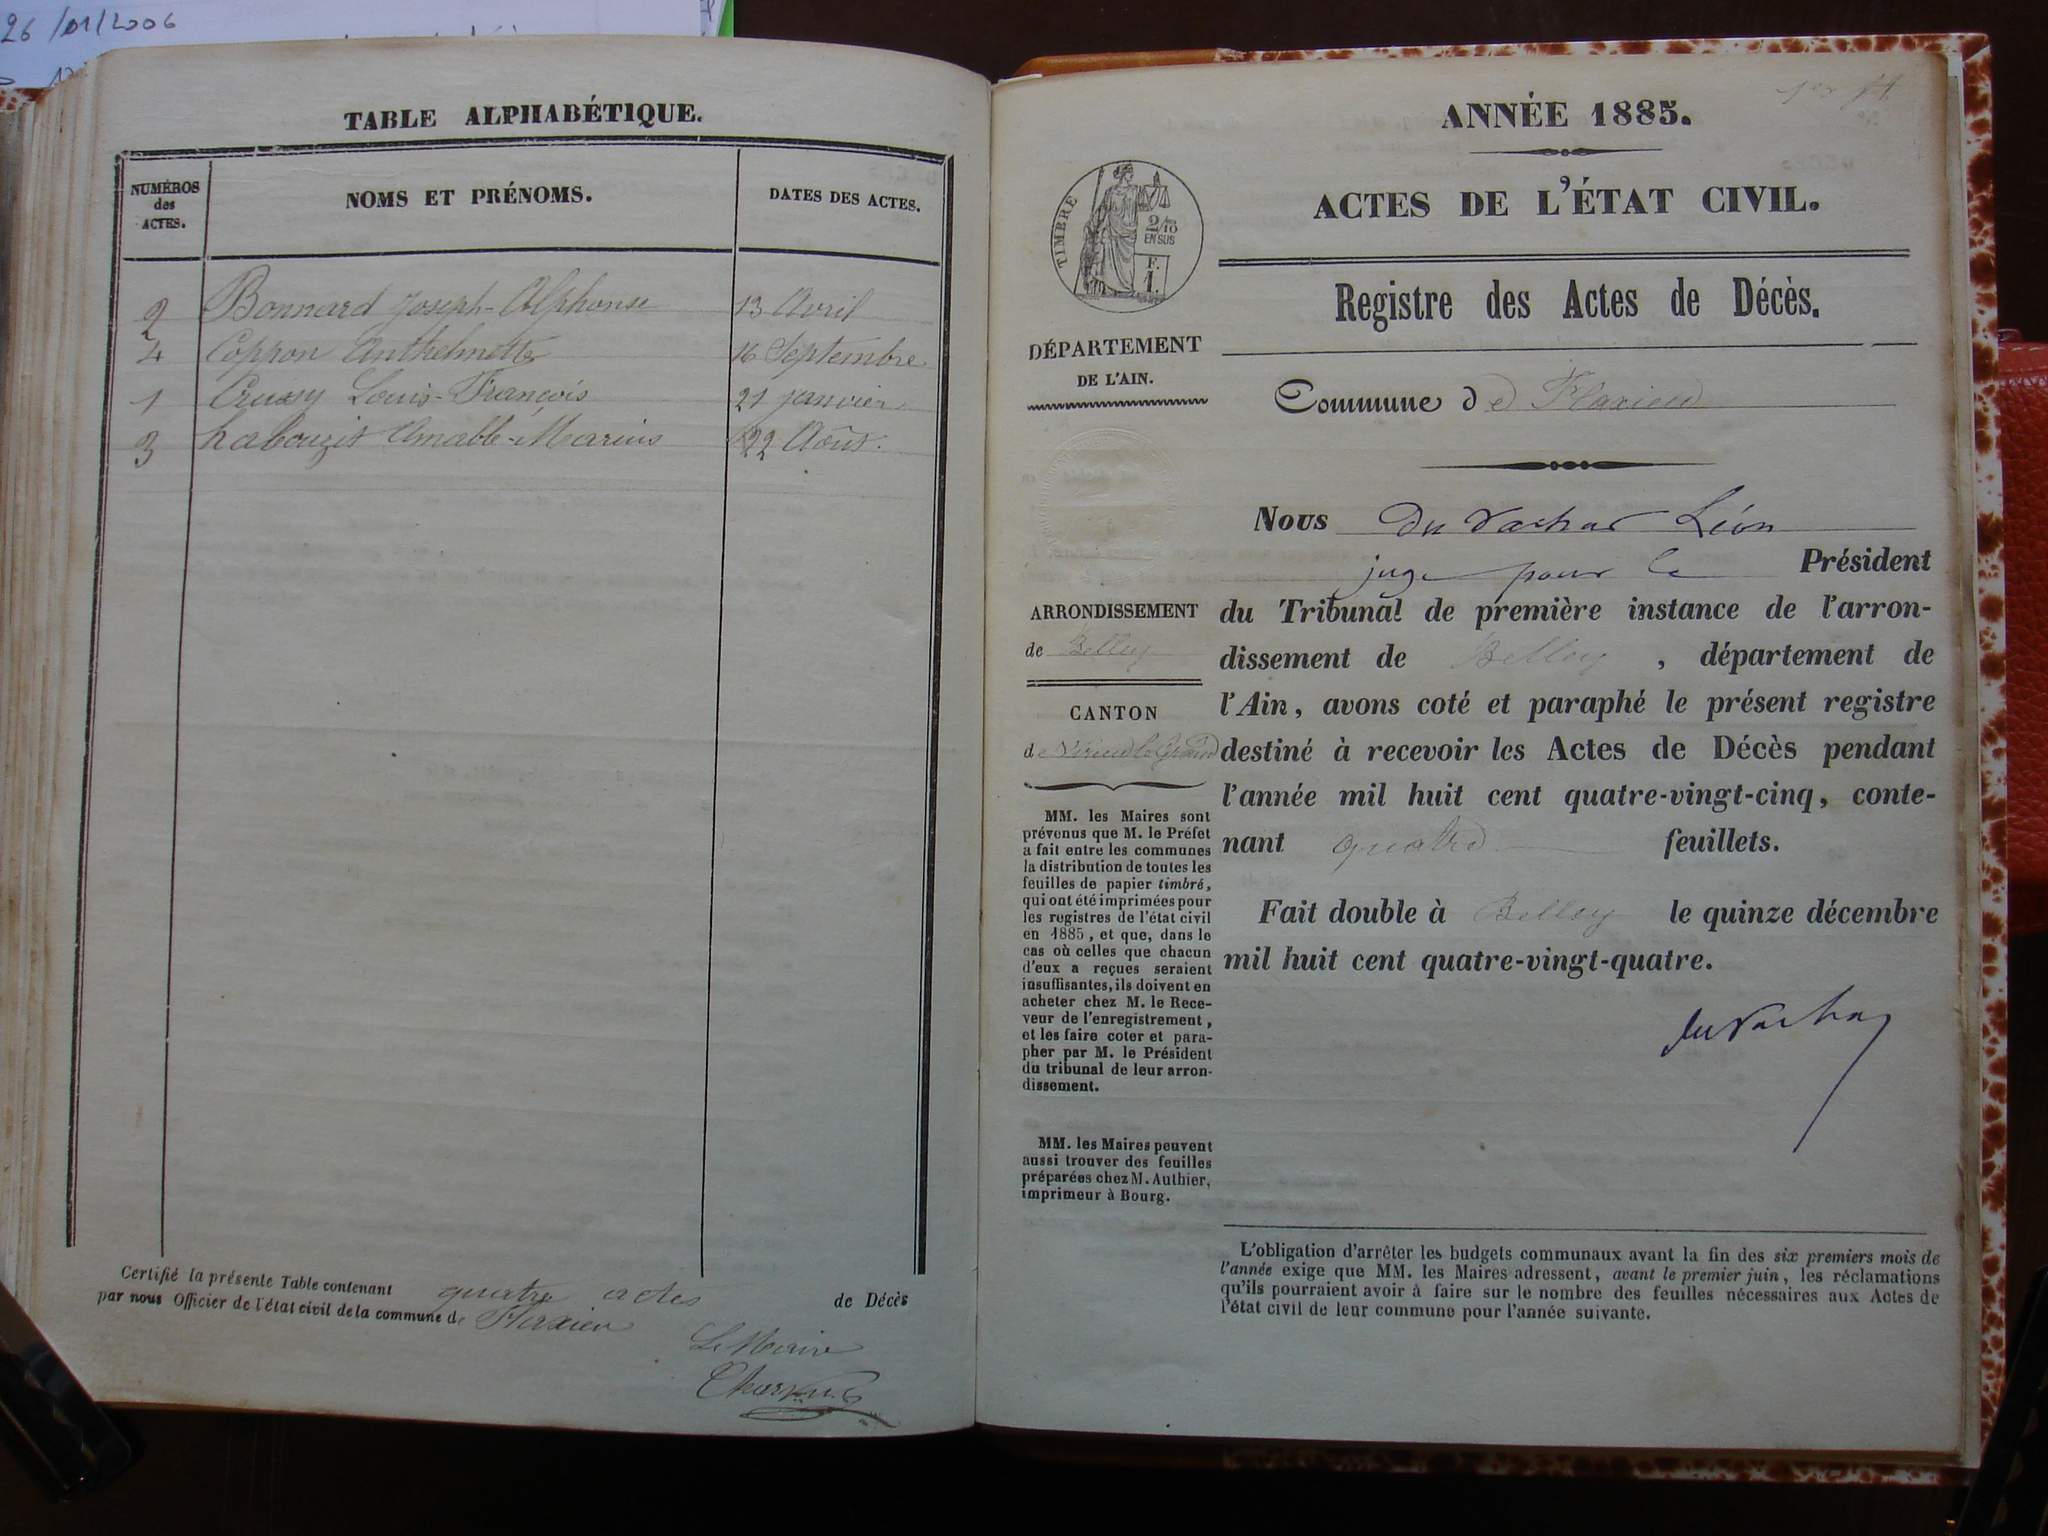 26/01/2006
TABLE ALPHABÉTIQUE.
NUMÉROS
des
ACTES.
NOMS ET PRÉNOMS.
DATES DES ACTES.
2 Bonnard Joseph-Alphonse 13 Avril
4 Coppon Anthelmette 16 Septembre
1 Crussy Louis-François 21 janvier
3 Labouzit Amable-Marius 22 Août.
Certifié la présente Table contenant quatre actes de Décès
par nous Officier de l'état civil de la commune de Flaxieu
Le Maire
1er ft
ANNÉE 1885.
ACTES DE L'ÉTAT CIVIL.
TIMBRE
2/10
EN SUS
F.
1.
Registre des Actes de Décès.
DÉPARTEMENT
DE L'AIN.
Commune de Flaxieu
Nous du Vachat Léon
juge pour le Président
du Tribunal de première instance de l'arron-
dissement de Belley, département de
l'Ain, avons coté et paraphé le présent registre
destiné à recevoir les Actes de Décès pendant
l'année mil huit cent quatre-vingt-cinq, conte-
nant quatre feuillets.
Fait double à Belley le quinze décembre
mil huit cent quatre-vingt-quatre.
du Vachat
ARRONDISSEMENT
de Belley
CANTON
de Virieu le Grand
MM. les Maires sont
prévenus que M. le Préfet
a fait entre les communes
la distribution de toutes les
feuilles de papier timbré,
qui ont été imprimées pour
les registres de l'état civil
en 1885, et que, dans le
cas où celles que chacun
d'eux a reçues seraient
insuffisantes, ils doivent en
acheter chez M. le Rece-
veur de l'enregistrement,
et les faire coter et para-
pher par M. le Président
du tribunal de leur arron-
dissement.
MM. les Maires peuvent
aussi trouver des feuilles
préparées chez M. Authier,
imprimeur à Bourg.
L'obligation d'arrêter les budgets communaux avant la fin des six premiers mois de
l'année exige que MM. les Maires adressent, avant le premier juin, les réclamations
qu'ils pourraient avoir à faire sur le nombre des feuilles nécessaires aux Actes de
l'état civil de leur commune pour l'année suivante.